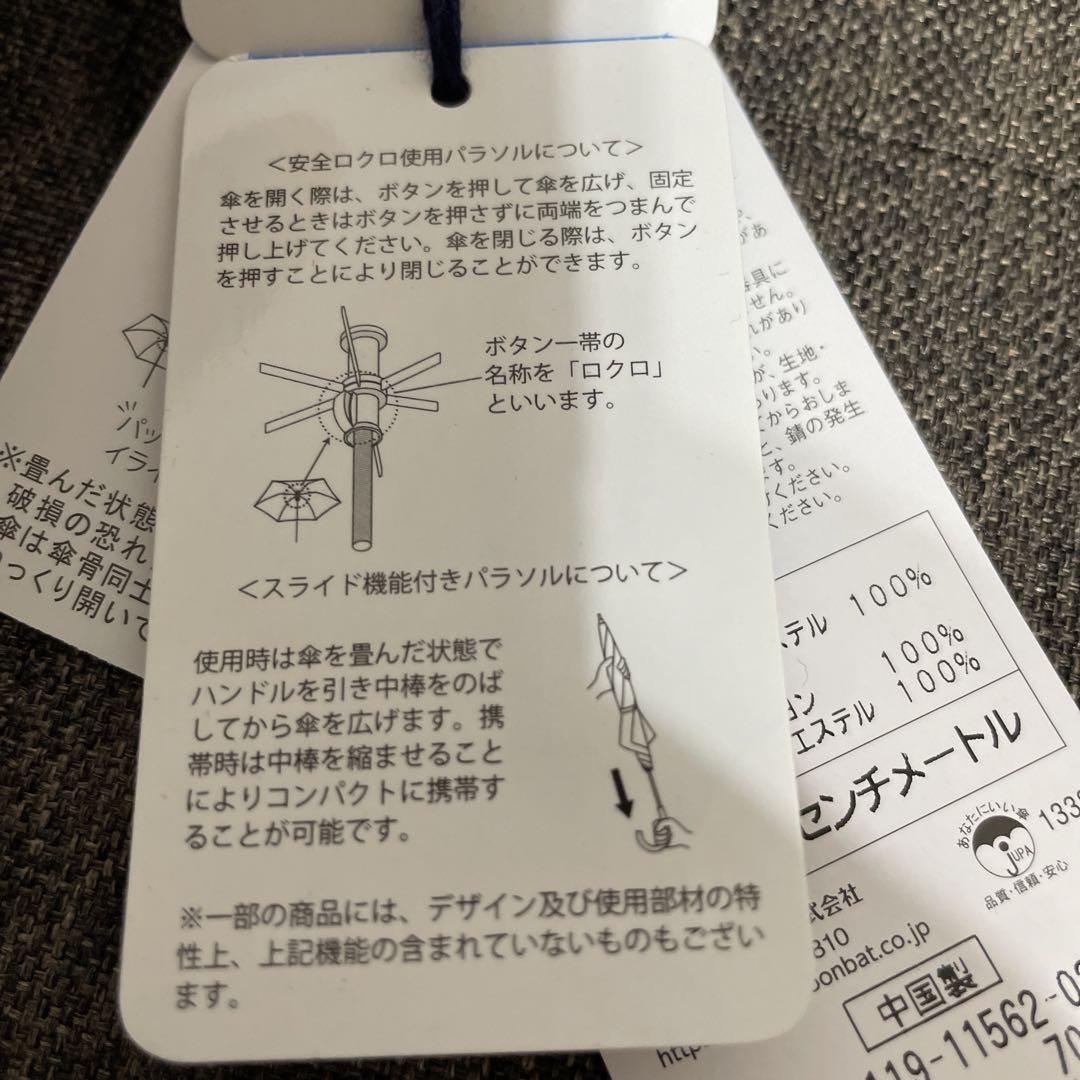 ＜安全ロクロ使用パラソルについて＞
傘を開く際は、ボタンを押して傘を広げ、固定
させるときはボタンを押さずに両端をつまんで
押し上げてください。傘を閉じる際は、ボタン
を押すことにより閉じることができます。
ボタン一帯の
名称を「ロクロ」
といいます。
＜スライド機能付きパラソルについて＞
使用時は傘を畳んだ状態で
ハンドルを引き中棒をのば
してから傘を広げます。携
帯時は中棒を縮ませること
によりコンパクトに携帯す
ることが可能です。
※一部の商品には、デザイン及び使用部材の特
性上、上記機能の含まれていないものもござい
ます。
パッ
イライ
※畳んだ状態
破損の恐れ
傘は傘骨同士
っくり開いて
があ
具に
せん。
があり
い。
が、生地・
ります。
てからおしま
と、錆の発生
す。
ください。
ください。
ステル 100%
100%
エステル 100%
センチメートル
あなたにいい傘
JUPA
品質・信頼・安心
133
式会社
310
onbat.co.jp
中国製
119-11562-0
70
http